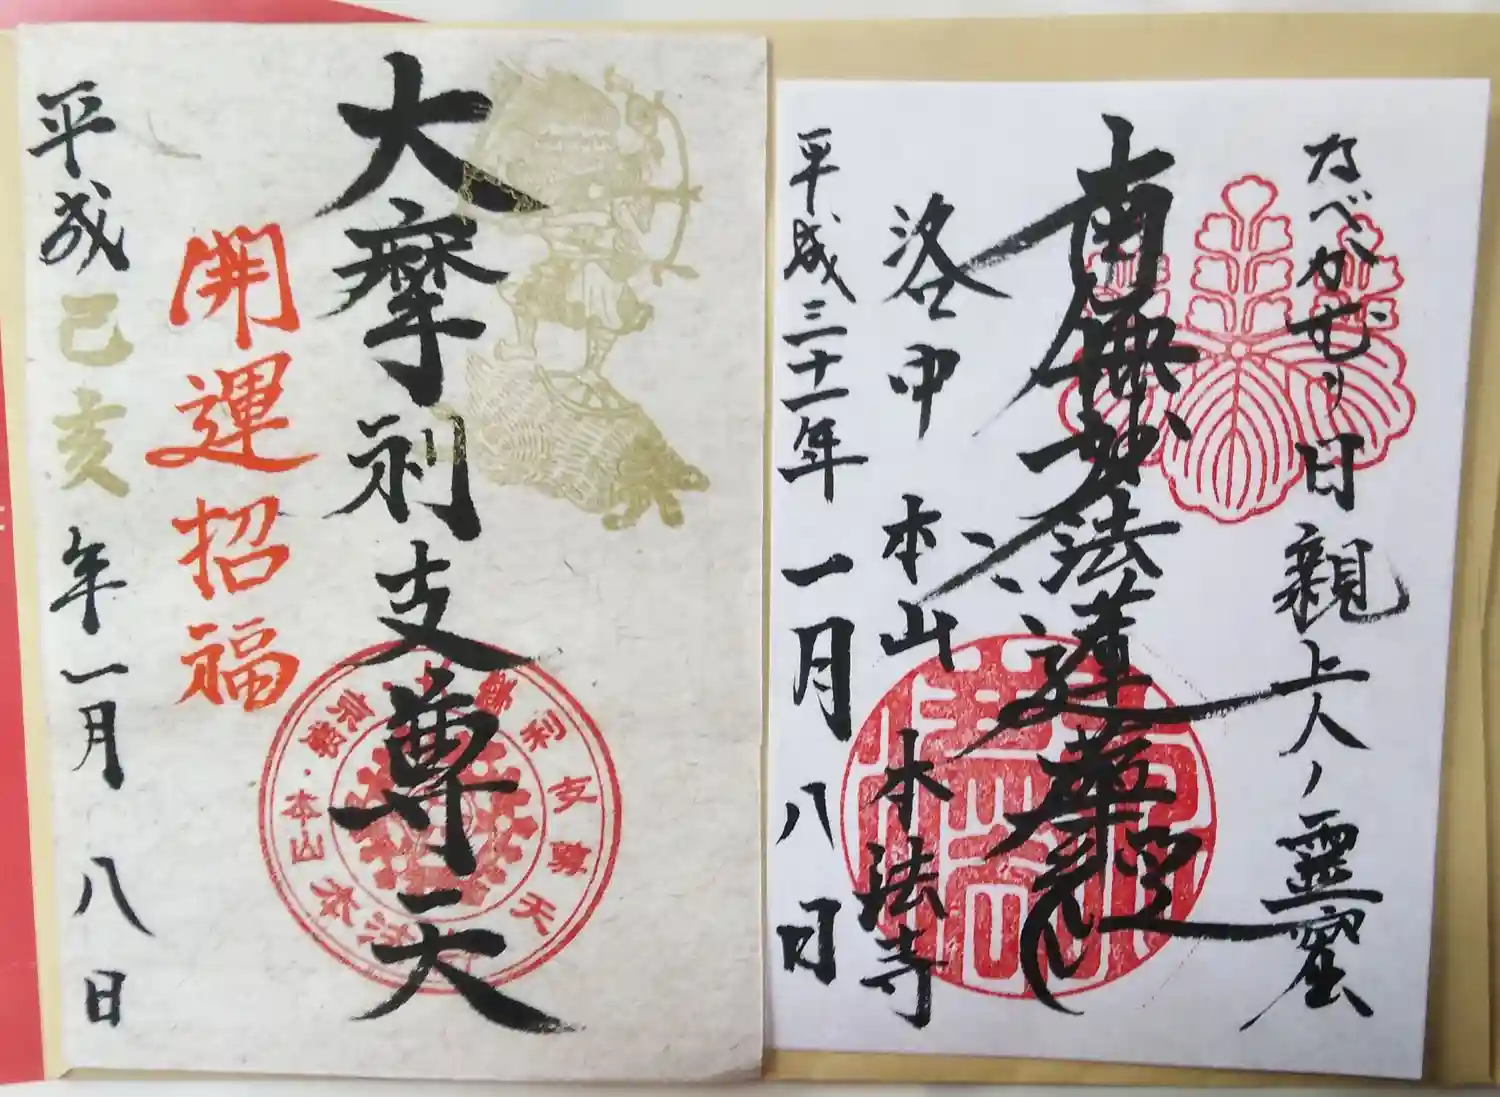 なべかむり日親上人ノ霊窟
南無妙法蓮華経
洛中 本山 本法寺
平成三十一年 一月八日
大摩利支尊天
開運招福
平成己亥年一月八日
京都・本山本法
利支尊天